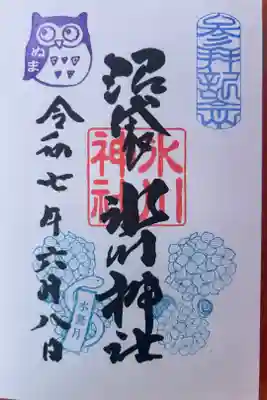 参拝記念
沼袋氷川神社
氷川神社
ぬま
令和七年六月八日
水無月